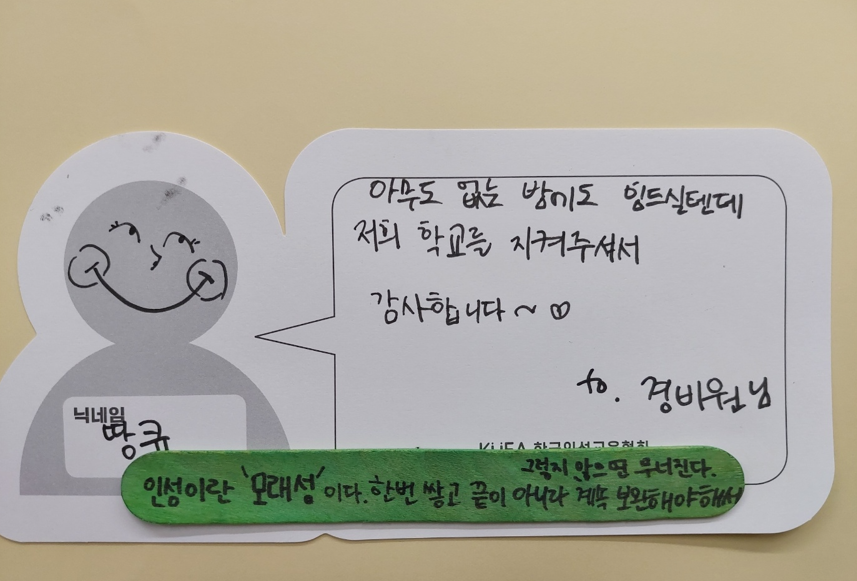 아무도 없는 밤에도 힘드실텐데
저희 학교를 지켜주셔서
감사합니다~ ♡
to. 경비원님
닉네임
땅큐
KHEA 한국인성교육협회
그렇지 않으면 무너진다.
인성이란 '모래성'이다. 한번 쌓고 끝이 아니라 계속 보완해야해서